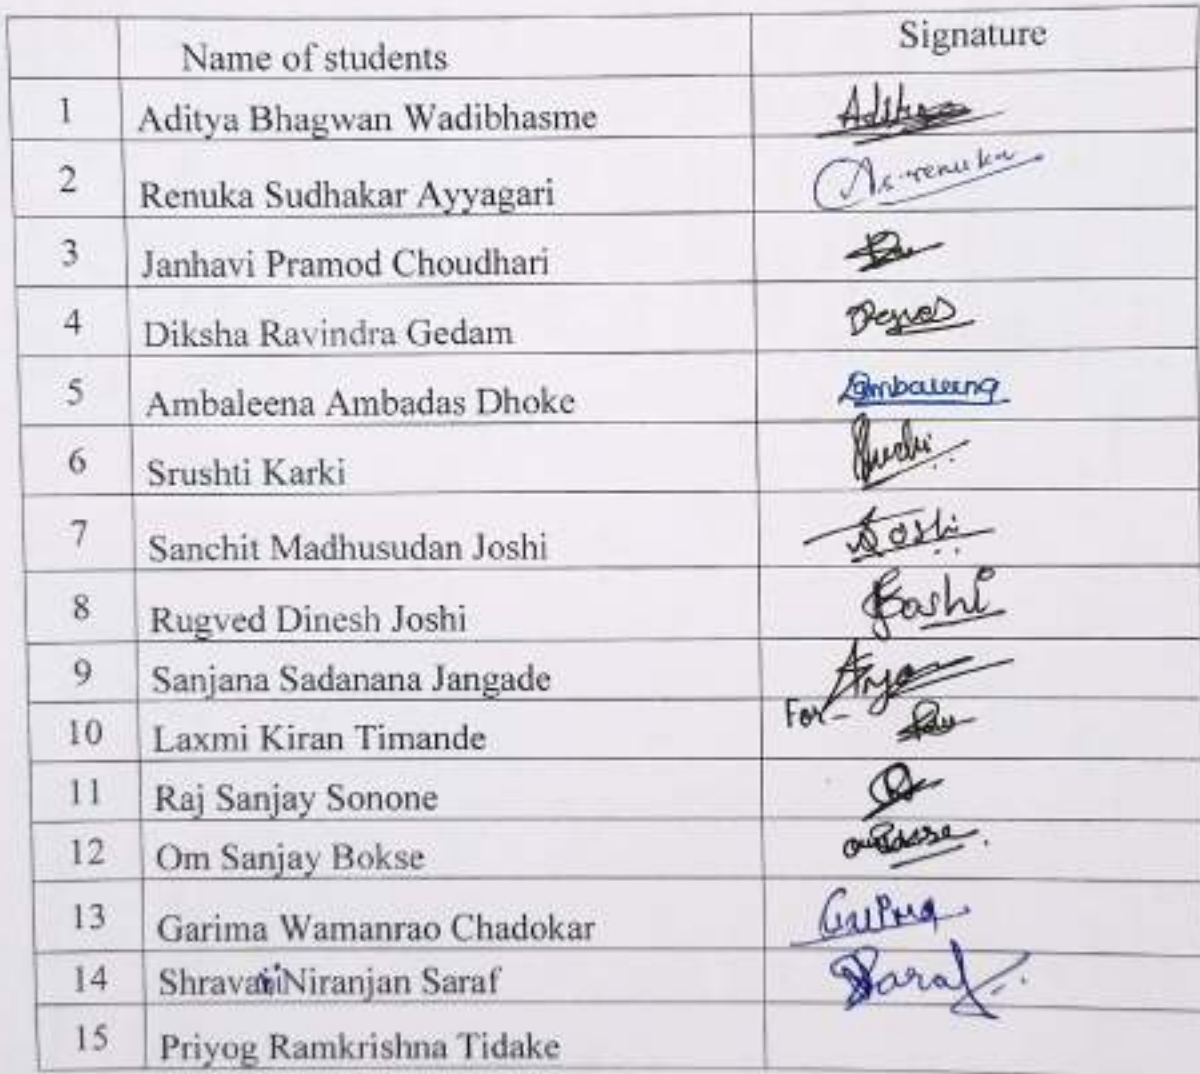 Name of students Signature
1 Aditya Bhagwan Wadibhasme Aditya
2 Renuka Sudhakar Ayyagari As-renuka
3 Janhavi Pramod Choudhari
4 Diksha Ravindra Gedam
5 Ambaleena Ambadas Dhoke Ambaleena
6 Srushti Karki
7 Sanchit Madhusudan Joshi Joshi
8 Rugved Dinesh Joshi Joshi
9 Sanjana Sadanana Jangade
10 Laxmi Kiran Timande For-
11 Raj Sanjay Sonone
12 Om Sanjay Bokse
13 Garima Wamanrao Chadokar
14 Shravani Niranjan Saraf Saraf
15 Priyog Ramkrishna Tidake